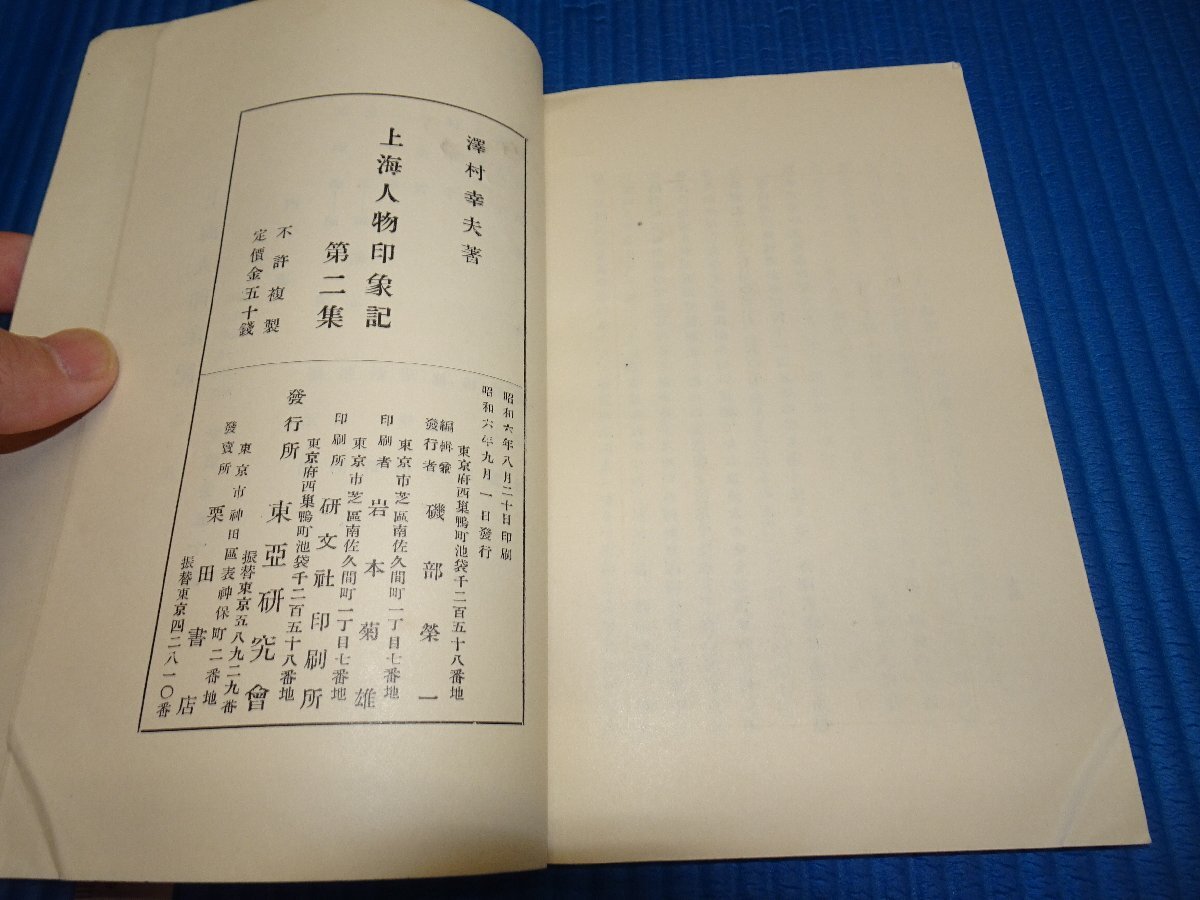 澤村幸夫著
上海人物印象記
第二集
不許複製
定價金五十錢
昭和六年八月二十日印刷
昭和六年九月一日發行
東京府西巢鴨町池袋千二百五十八番地
編輯兼發行者 磯部榮一
東京市芝區南佐久間町一丁目七番地
印刷者 岩本菊雄
東京市芝區南佐久間町一丁目七番地
印刷所 研文社印刷所
東京府西巢鴨町池袋千二百五十八番地
發行所 東亞研究會
振替東京五八九二九番
東京市神田區表神保町二番地
發賣所 栗田書店
振替東京四二八一〇番